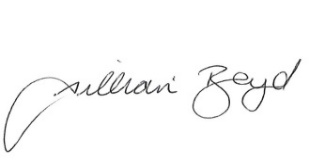 Jillian Boyd